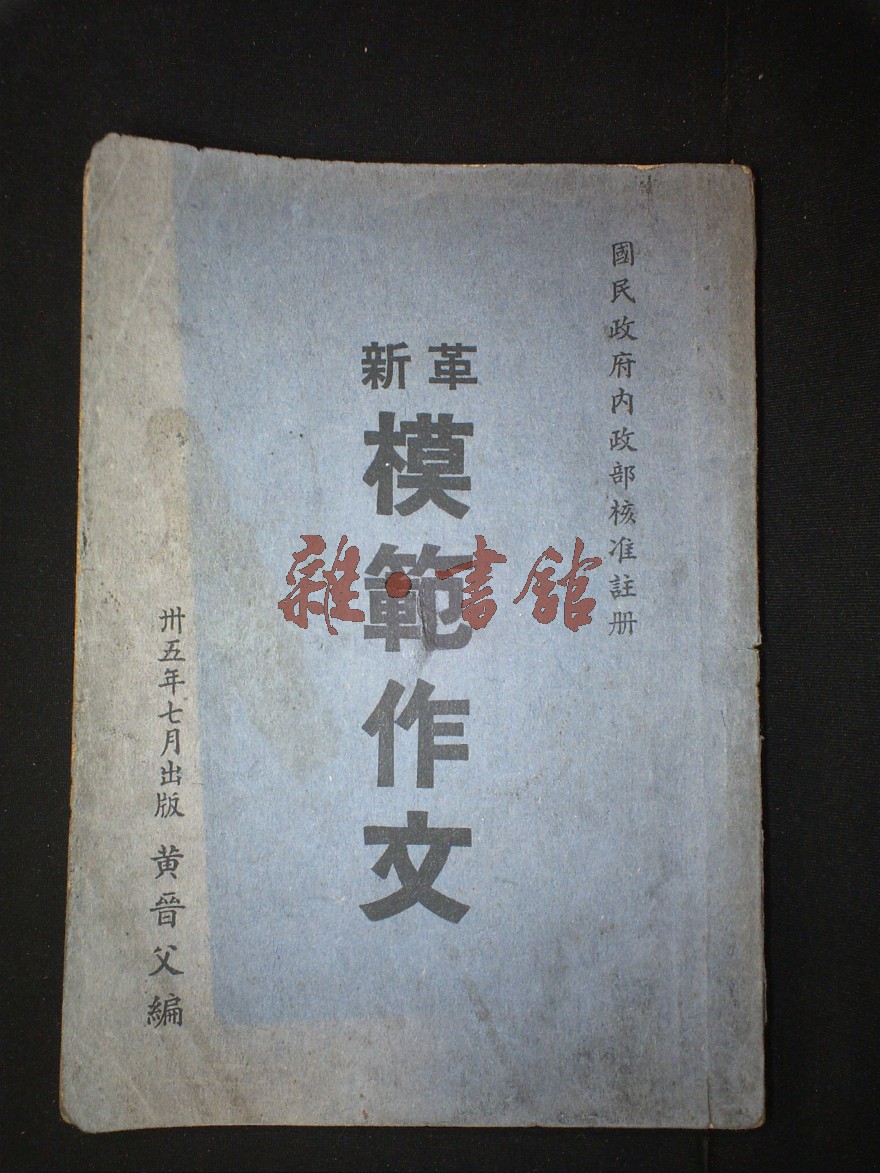 國民政府內政部核准註册
革新
模範作文
卅五年七月出版 黄晉父編
雜·書館